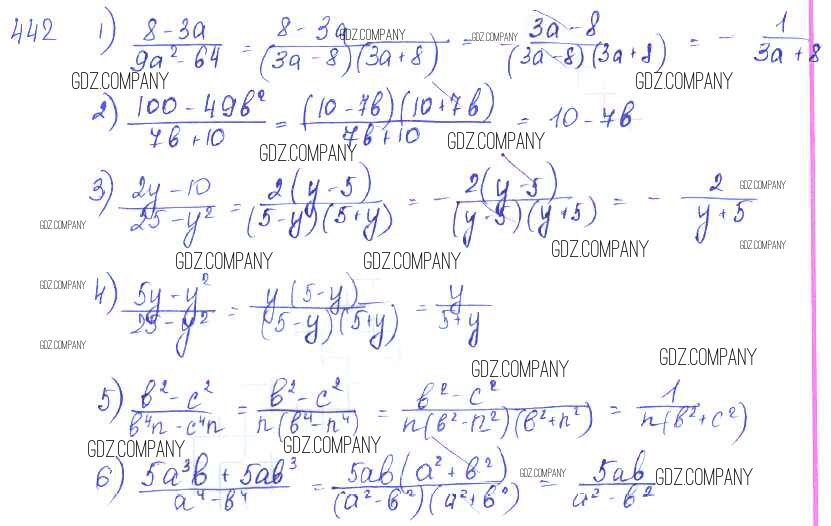 442 1) (8 - 3a)/(9a² - 64) = (8 - 3a)/((3a - 8)(3a + 8)) = (3a - 8)/((3a - 8)(3a + 8)) = - 1/(3a + 8)
GDZ.COMPANY GDZ.COMPANY
GDZ.COMPANY GDZ.COMPANY
2) (100 - 49в²)/(7в + 10) = ((10 - 7в)(10 + 7в))/(7в + 10) = 10 - 7в
GDZ.COMPANY GDZ.COMPANY
3) (2y - 10)/(25 - y²) = (2(y - 5))/((5 - y)(5 + y)) = - (2(y - 5))/((y - 5)(y + 5)) = - 2/(y + 5)
GDZ.COMPANY
GDZ.COMPANY
GDZ.COMPANY GDZ.COMPANY GDZ.COMPANY GDZ.COMPANY
4) (5y - y²)/(25 - y²) = (y(5 - y))/((5 - y)(5 + y)) = y/(5 + y)
GDZ.COMPANY
GDZ.COMPANY
GDZ.COMPANY GDZ.COMPANY
5) (в² - c²)/(в⁴n - c⁴n) = (в² - c²)/(n(в⁴ - n⁴)) = (в² - c²)/(n(в² - n²)(в² + n²)) = 1/(n(в² + c²))
GDZ.COMPANY GDZ.COMPANY
6) (5a³в + 5aв³)/(a⁴ - в⁴) = (5aв(a² + в²))/((a² - в²)(a² + в²)) = 5aв/(a² - в²)
GDZ.COMPANY GDZ.COMPANY